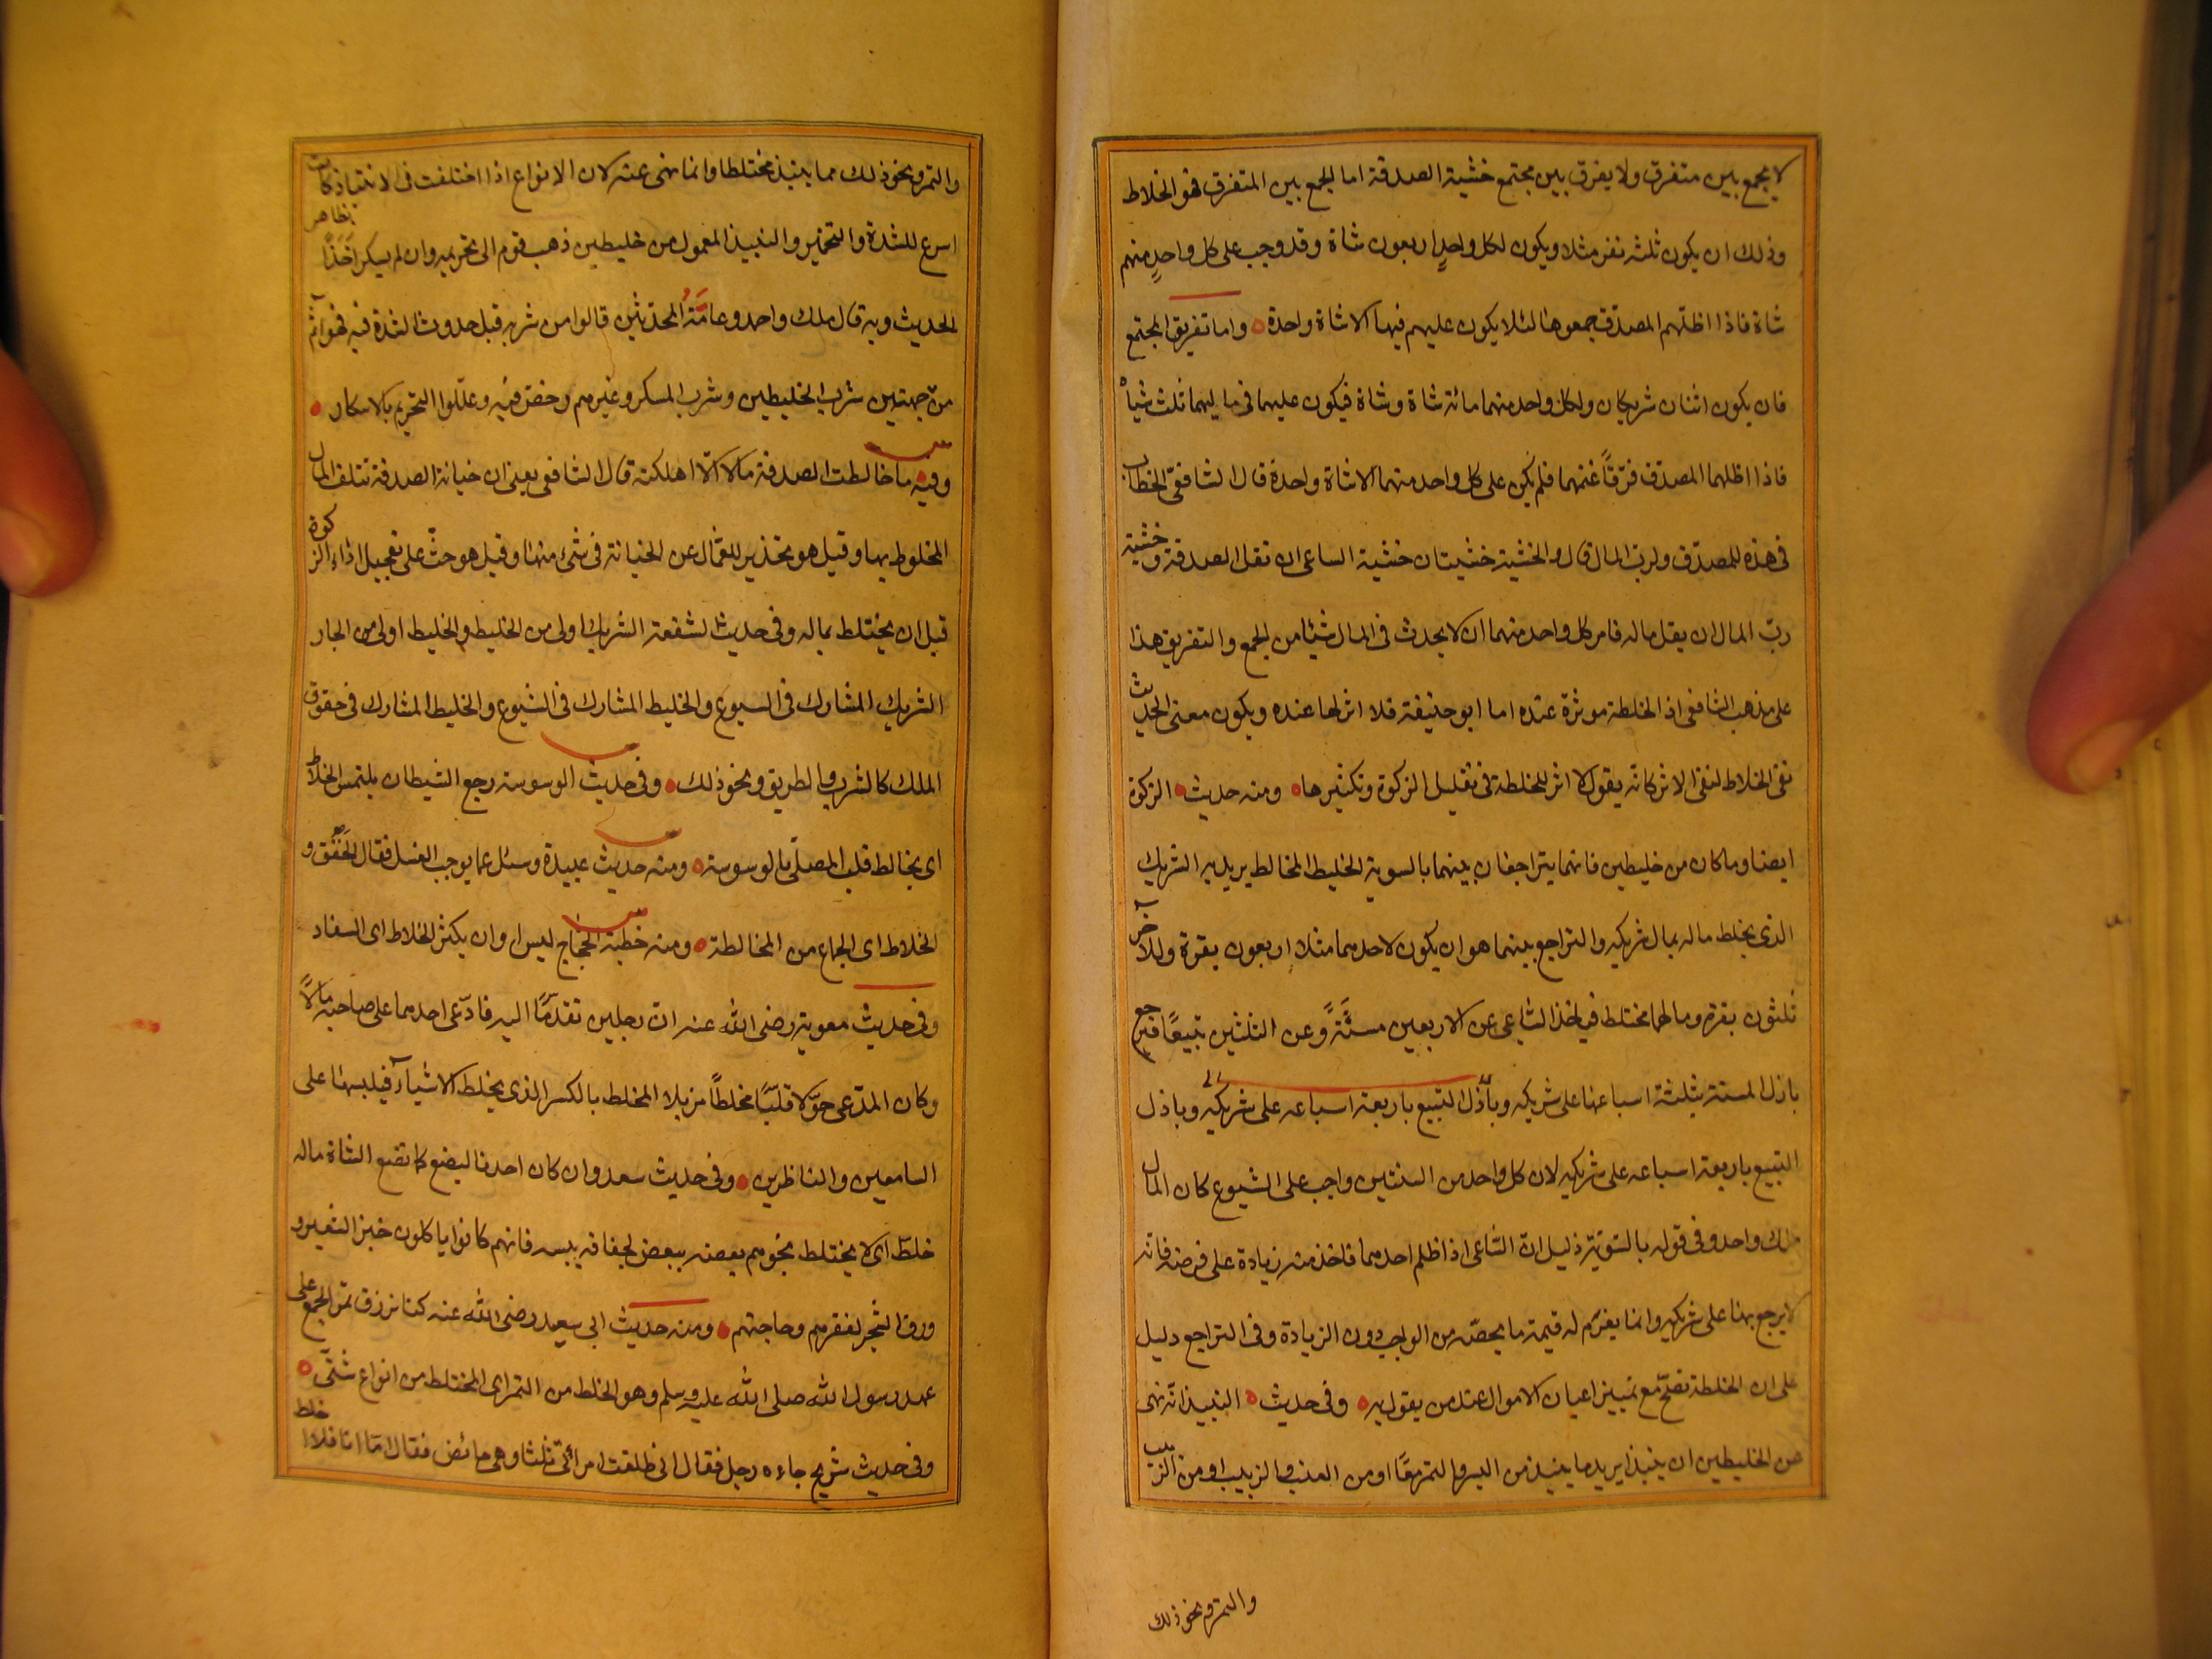 لا يجمع بين متفرق ولا يفرق بين مجتمع خشية الصدقة اما الجمع بين المتفرق فهو الخلاط
وذلك ان يكون ثلثه نفر مثلا ويكون لكل واحدٍ اربعون شاة وقد وجب على كل واحدٍ منهم
شاة فاذا اظلّهم المصدّق جمعوها لئلا يكون عليهم فيها الا شاة واحدة واما تفريق المجتمع
فان يكون اثنان شريكان ولكل واحد منهما مائة شاة وشاة فيكون عليهما فى ماليهما ثلث شياه
فاذا اظلهما المصدّق فرّقاً غنمهما فلم يكن على كل واحد منهما الا شاة واحدة قال الشافعىّ الخطاب
فى هذه للمصدّق ولربّ المال قال والخشية خشيتان خشية الساعى ان تقل الصدقة وخشية
ربّ المال ان يقل ماله فامر كل واحد منهما ان لا يحدث فى المال شيئا من الجمع والتفريق هذا
على مذهب الشافعى اذ الخلطة موثرة عنده اما ابو حنيفة فلا اثر لها عنده ويكون معنى الحديث
نفى الخلاط لنفى الاثر كانه يقول لا اثر للخلطة فى تقليل الزكوة وتكثيرها ومنه حديث الزكوة
ايضا وما كان من خليطين فانهما يتراجعان بينهما بالسوية الخليط المخالط يريد به الشريك
الذى يخلط ماله بمال شريكه والتراجع بينهما هو ان يكون لاحدهما مثلا اربعون بقرة وللآخر
ثلثون بقرة ومالهما مختلط فياخذ الساعى عن الاربعين مسنّةً وعن الثلثين تبيعًا فيرجع
باذل المسنة بثلثة اسباعها على شريكه وباذل التبيع باربعة اسباعه على شريكه وباذل
التبيع باربعة اسباعه على شريكه لان كل واحد من السنين واجب على الشيوع كان المال
ملك واحد وفى قوله بالسّويّة دليل انّ السّاعى اذا ظلم احدهما فاخذ منه زيادة على فرضه فانه
لا يرجع بها على شريكه وانما يغرّم له قيمة ما يخصّه من الواجب دون الزيادة وفى التراجع دليل
على ان الخلطة تصحّ مع تمييز اعيان الاموال عند من يقول به وفى حديث النبيذ انّه نهى
عن الخليطين ان ينبذا يريد ما ينبذ من البسر والتمر معًا او من العنب والزبيب او من الزبيب
والتمر ونحو ذلك
والتمر ونحو ذلك مما ينبذ مختلطا وانما نهى عنه لان الانواع اذا اختلفت فى الانتباذ كانت
اسرع للشدة والتخمير والنبيذ المعمول من خليطين ذهب قوم الى تحريمه وان لم يسكر اخذًا بظاهر
الحديث وبه قال ملك واحمد وعامّةُ المحدّثين قالوا من شربه قبل حدوث الشدة فيه فهو آثم
من جهتين شرب الخليطين وشرب المسكر وغيرهم رخص فيه وعلّلوا التحريم بالاسكار
وفيه ما خالطت الصدقة مالا الّا اهلكته قال الشافعى يعنى ان خيانة الصدقة تتلف المال
المخلوط بها وقيل هو تحذير للعمّال عن الخيانة فى شئ منها وقيل هو حثّ على تعجيل اداء الزكوة
قبل ان يختلط بماله وفى حديث الشفعة الشريك اولى من الخليط والخليط اولى من الجار
الشريك المشارك فى الشيوع والخليط المشارك فى الشيوع والخليط المشارك فى حقوق
الملك كالشرب والطريق ونحو ذلك وفى حديث الوسوسة رجع الشيطان يلتمس الخلاط
اى يخالط قلب المصلّى بالوسوسة ومنه حديث عبيدة وسئل عما يوجب الغسل فقال الخفق و
الخلاط اى الجماع من المخالطة ومنه خطبة الحجّاج ليس اوان يكثر الخلاط اى السفاد
وفى حديث معوية رضى الله عنه انّ رجلين تقدّمًا اليه فادّعى احدهما على صاحبه مالاً
وكان المدّعى حوّلا قلّبًا مخلطاً مزيلا المخلط بالكسر الذى يخلط الاشيآء فيلبسها على
السامعين والناظرين وفى حديث سعد وان كان احدنا ليضع كما تضع الشاة ماله
خلط اى لا يختلط نجوهم بعضه ببعض لجفافه ويبسه فانهم كانوا ياكلون خبز الشعير و
ورق الشجر لفقرهم وحاجتهم ومنه حديث ابى سعيد رضى الله عنه كنا نرزق تمر الجمع على
عهد رسول الله صلى الله عليه وسلم وهو الخلط من التمر اى المختلط من انواع شتّى
وفى حديث شريح جاءه رجل فقال انى طلقت امرأتى ثلثا وهى حائض فقال امّا انا فلا اخلط